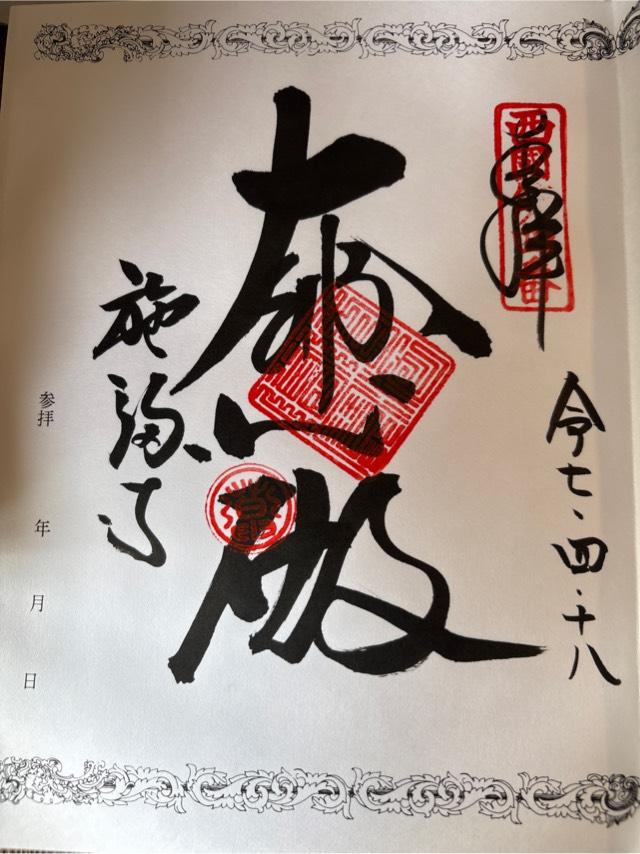 奉拝
令七・四・十八
大悲殿
施福寺
参拝 年 月 日